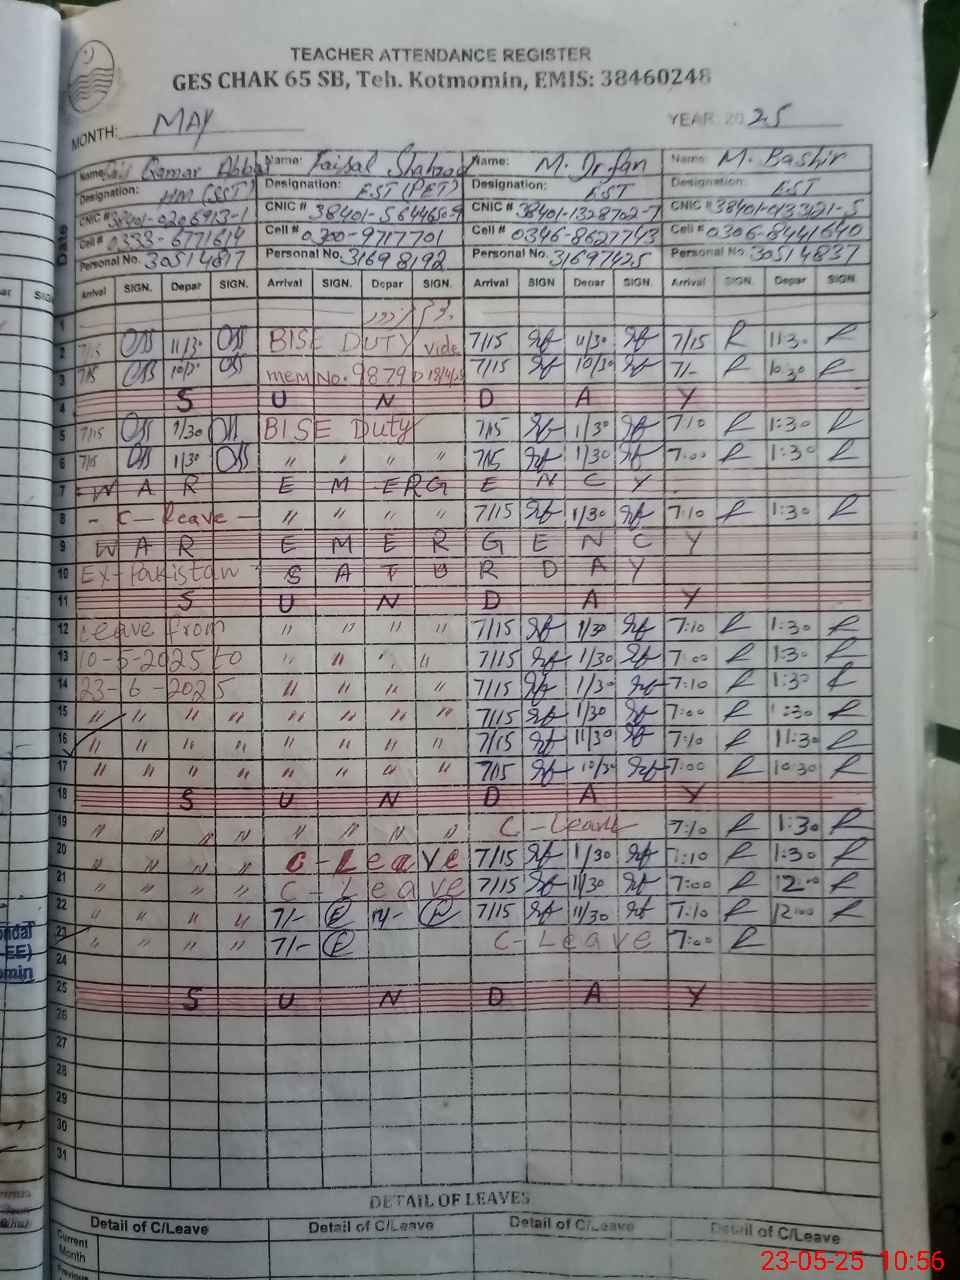 TEACHER ATTENDANCE REGISTER
GES CHAK 65 SB, Teh. Kotmomin, EMIS: 38460248
MONTH: MAY YEAR: 2025
Date
Name: Qamar Abbas Name: Faisal Shahzad Name: M. Irfan Name: M. Bashir
Designation: HM (SST) Designation: EST (PET) Designation: EST Designation: EST
CNIC # 38401-0206913-1 CNIC # 38401-5644650-9 CNIC # 38401-1328702-7 CNIC #
Cell # 0333-6771614 Cell # 0300-9717701 Cell # 0346-8627743 Cell # 0306-8441640
Personal No. 30514817 Personal No. 31698192 Personal No. 31697425 Personal No. 30514837
Arrival SIGN. Depar SIGN. Arrival SIGN. Depar SIGN. Arrival SIGN Depar SIGN. Arrival SIGN. Depar SIGN.
1
2 7/15 11/30 BISE DUTY vide 7/15 11/30 7/15 R 11:30 R
3 7/15 10/30 mem No. 9879 D 7/15 10/30 7/- R 10:30 R
4 S U N D A Y
5 7/15 1/30 BISE Duty 7/15 1/30 7/10 R 1:30 R
6 7/15 1/30 " " " " 7/15 1/30 7:00 R 1:30 R
7 W A R E M E R G E N C Y
8 - C - Leave - " " " " 7/15 1/30 7:10 R 1:30 R
9 W A R E M E R G E N C Y
10 Ex-Pakistan S A T U R D A Y
11 S U N D A Y
12 Leave from " " " " 7/15 1/30 7:10 R 1:30 R
13 10-5-2025 to " " " " 7/15 1/30 7:00 R 1:30 R
14 23-6-2025 " " " " 7/15 1/30 7:10 R 1:30 R
15 " " " " " " " " 7/15 1/30 7:00 R 1:30 R
16 " " " " " " " " 7/15 11/30 7:10 R 11:30 R
17 " " " " " " " " 7/15 10/30 7:00 R 10:30 R
18 S U N D A Y
19 " " " " " " " " C - Leave 7:10 R 1:30 R
20 " " " " C - Leave 7/15 1/30 7:10 R 1:30 R
21 " " " " C - Leave 7/15 11/30 7:00 R 12:00 R
22 " " " " 7/- 7/15 11/30 7:10 R 12:00 R
23 " " " " 7/- C - Leave 7:00 R
24
25 S U N D A Y
26
27
28
29
30
31
DETAIL OF LEAVES
Detail of C/Leave Detail of C/Leave Detail of C/Leave Detail of C/Leave
Current Month
Previous
23-05-25 10:56